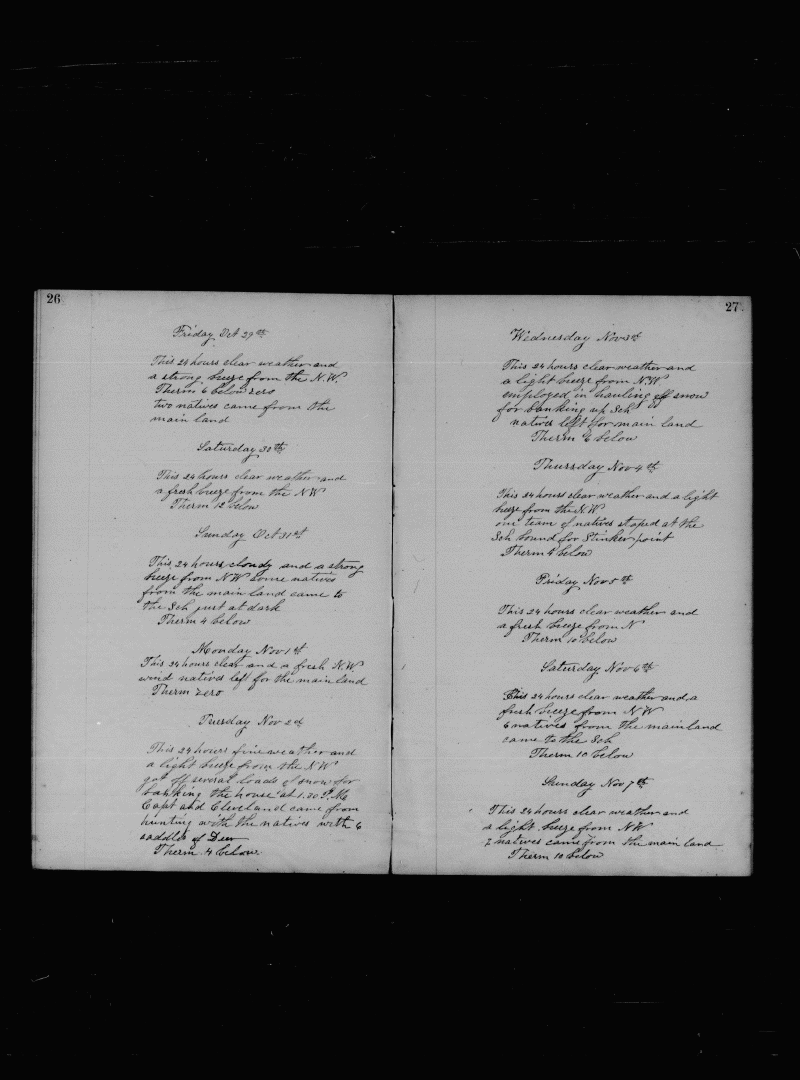 26
Friday Oct 29th
This 24 hours clear weather and
a strong breeze from the N.W.
Therm 6 below zero
two natives came from the
main land
Saturday 30th
This 24 hours clear weather and
a fresh breeze from the NW
Therm 12 below
Sunday Oct 31st
This 24 hours cloudy and a strong
breeze from NW some natives
from the main land came to
the Sch just at dark
Therm 4 below
Monday Nov 1st
This 24 hours clear and a fresh N.W.
wind natives left for the main land
Therm zero
Tuesday Nov 2d
This 24 hours fine weather and
a light breeze from the NW
got off several loads of snow for
banking the house at 1.00 P.M
Capt and Cleveland came from
hunting with the natives with 6
saddles of Deer
Therm 4 below
27
Wednesday Nov 3d
This 24 hours clear weather and
a light breeze from NW
employed in hauling off snow
for banking up Sch
natives left for main land
Therm 6 below
Thursday Nov 4th
This 24 hours clear weather and a light
breeze from the NW
one team of natives stoped at the
Sch bound for Stinker point
Therm 4 below
Friday Nov 5th
This 24 hours clear weather and
a fresh breeze from N
Therm 10 below
Saturday Nov 6th
This 24 hours clear weather and a
fresh breeze from NW
6 natives from the mainland
came to the Sch
Therm 10 below
Sunday Nov 7th
This 24 hours clear weather and
a light breeze from NW
2 natives came from the main land
Therm 10 below